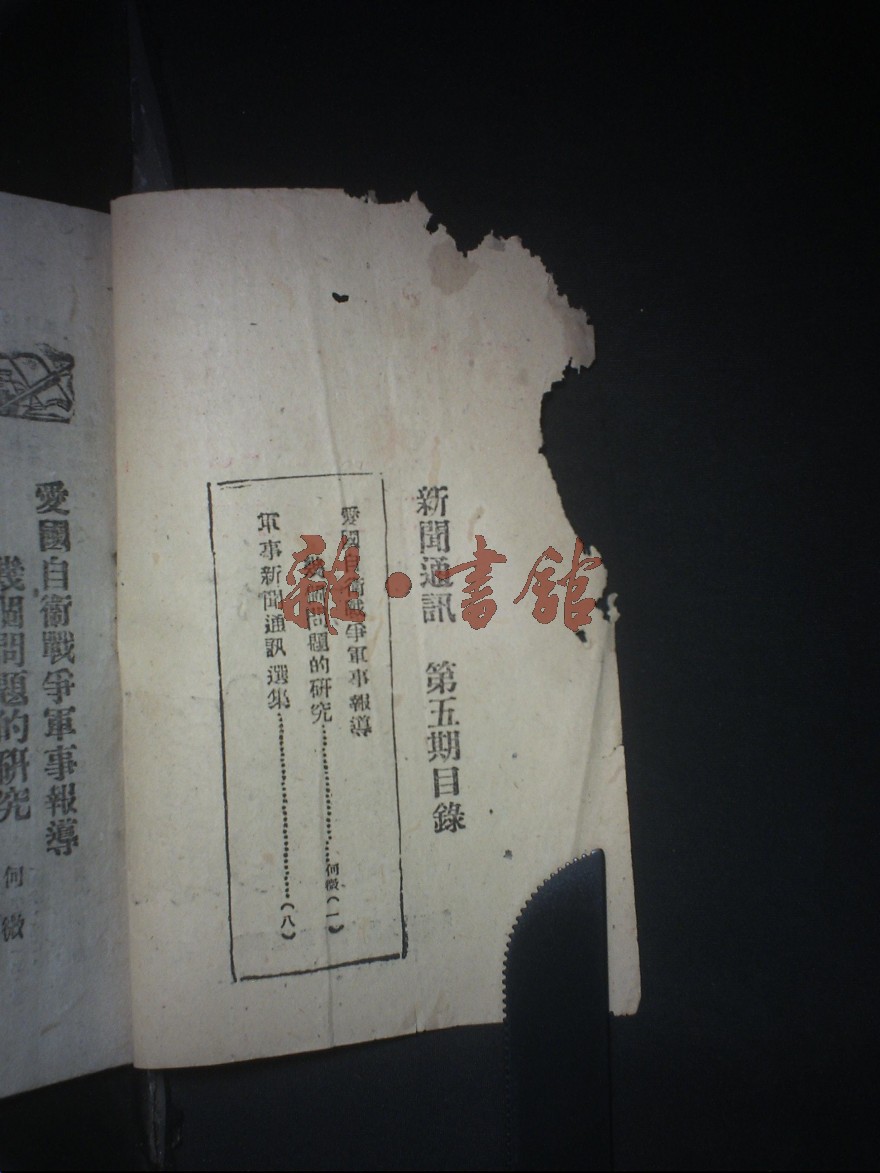 新聞通訊 第五期目錄
愛國自衞戰爭軍事報導
幾個問題的研究……何微（一）
軍事新聞通訊選集……（八）
愛國自衞戰爭軍事報導
幾個問題的研究 何微
雜·書館